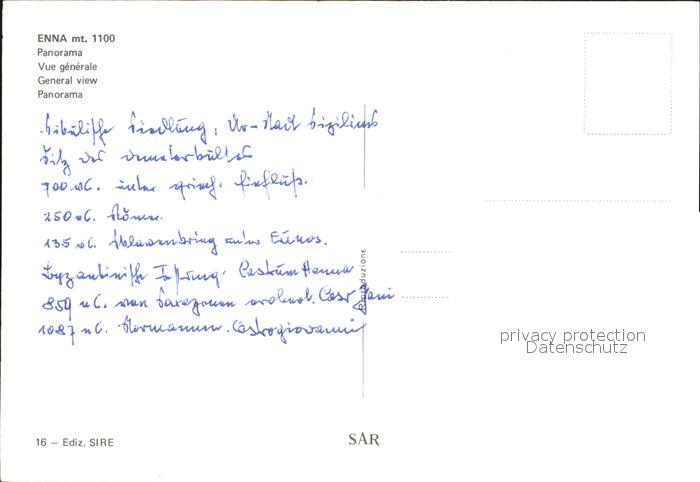 ENNA mt. 1100
Panorama
Vue générale
General view
Panorama
Sikulische Siedlung, Ur-Stadt Siziliens
Sitz des Demeterkultes
700 vC. unter griech. Einfluß.
250 vC. Römer.
135 vC. Sklavenkrieg unter Eunos.
Byzantinische Festung. Castrum Henna
859 nC. von Sarazenen erobert. Casr Jani
1087 nC. Normannen. Castrogiovanni
Riproduzione
privacy protection
Datenschutz
16 — Ediz. SIRE
SAR